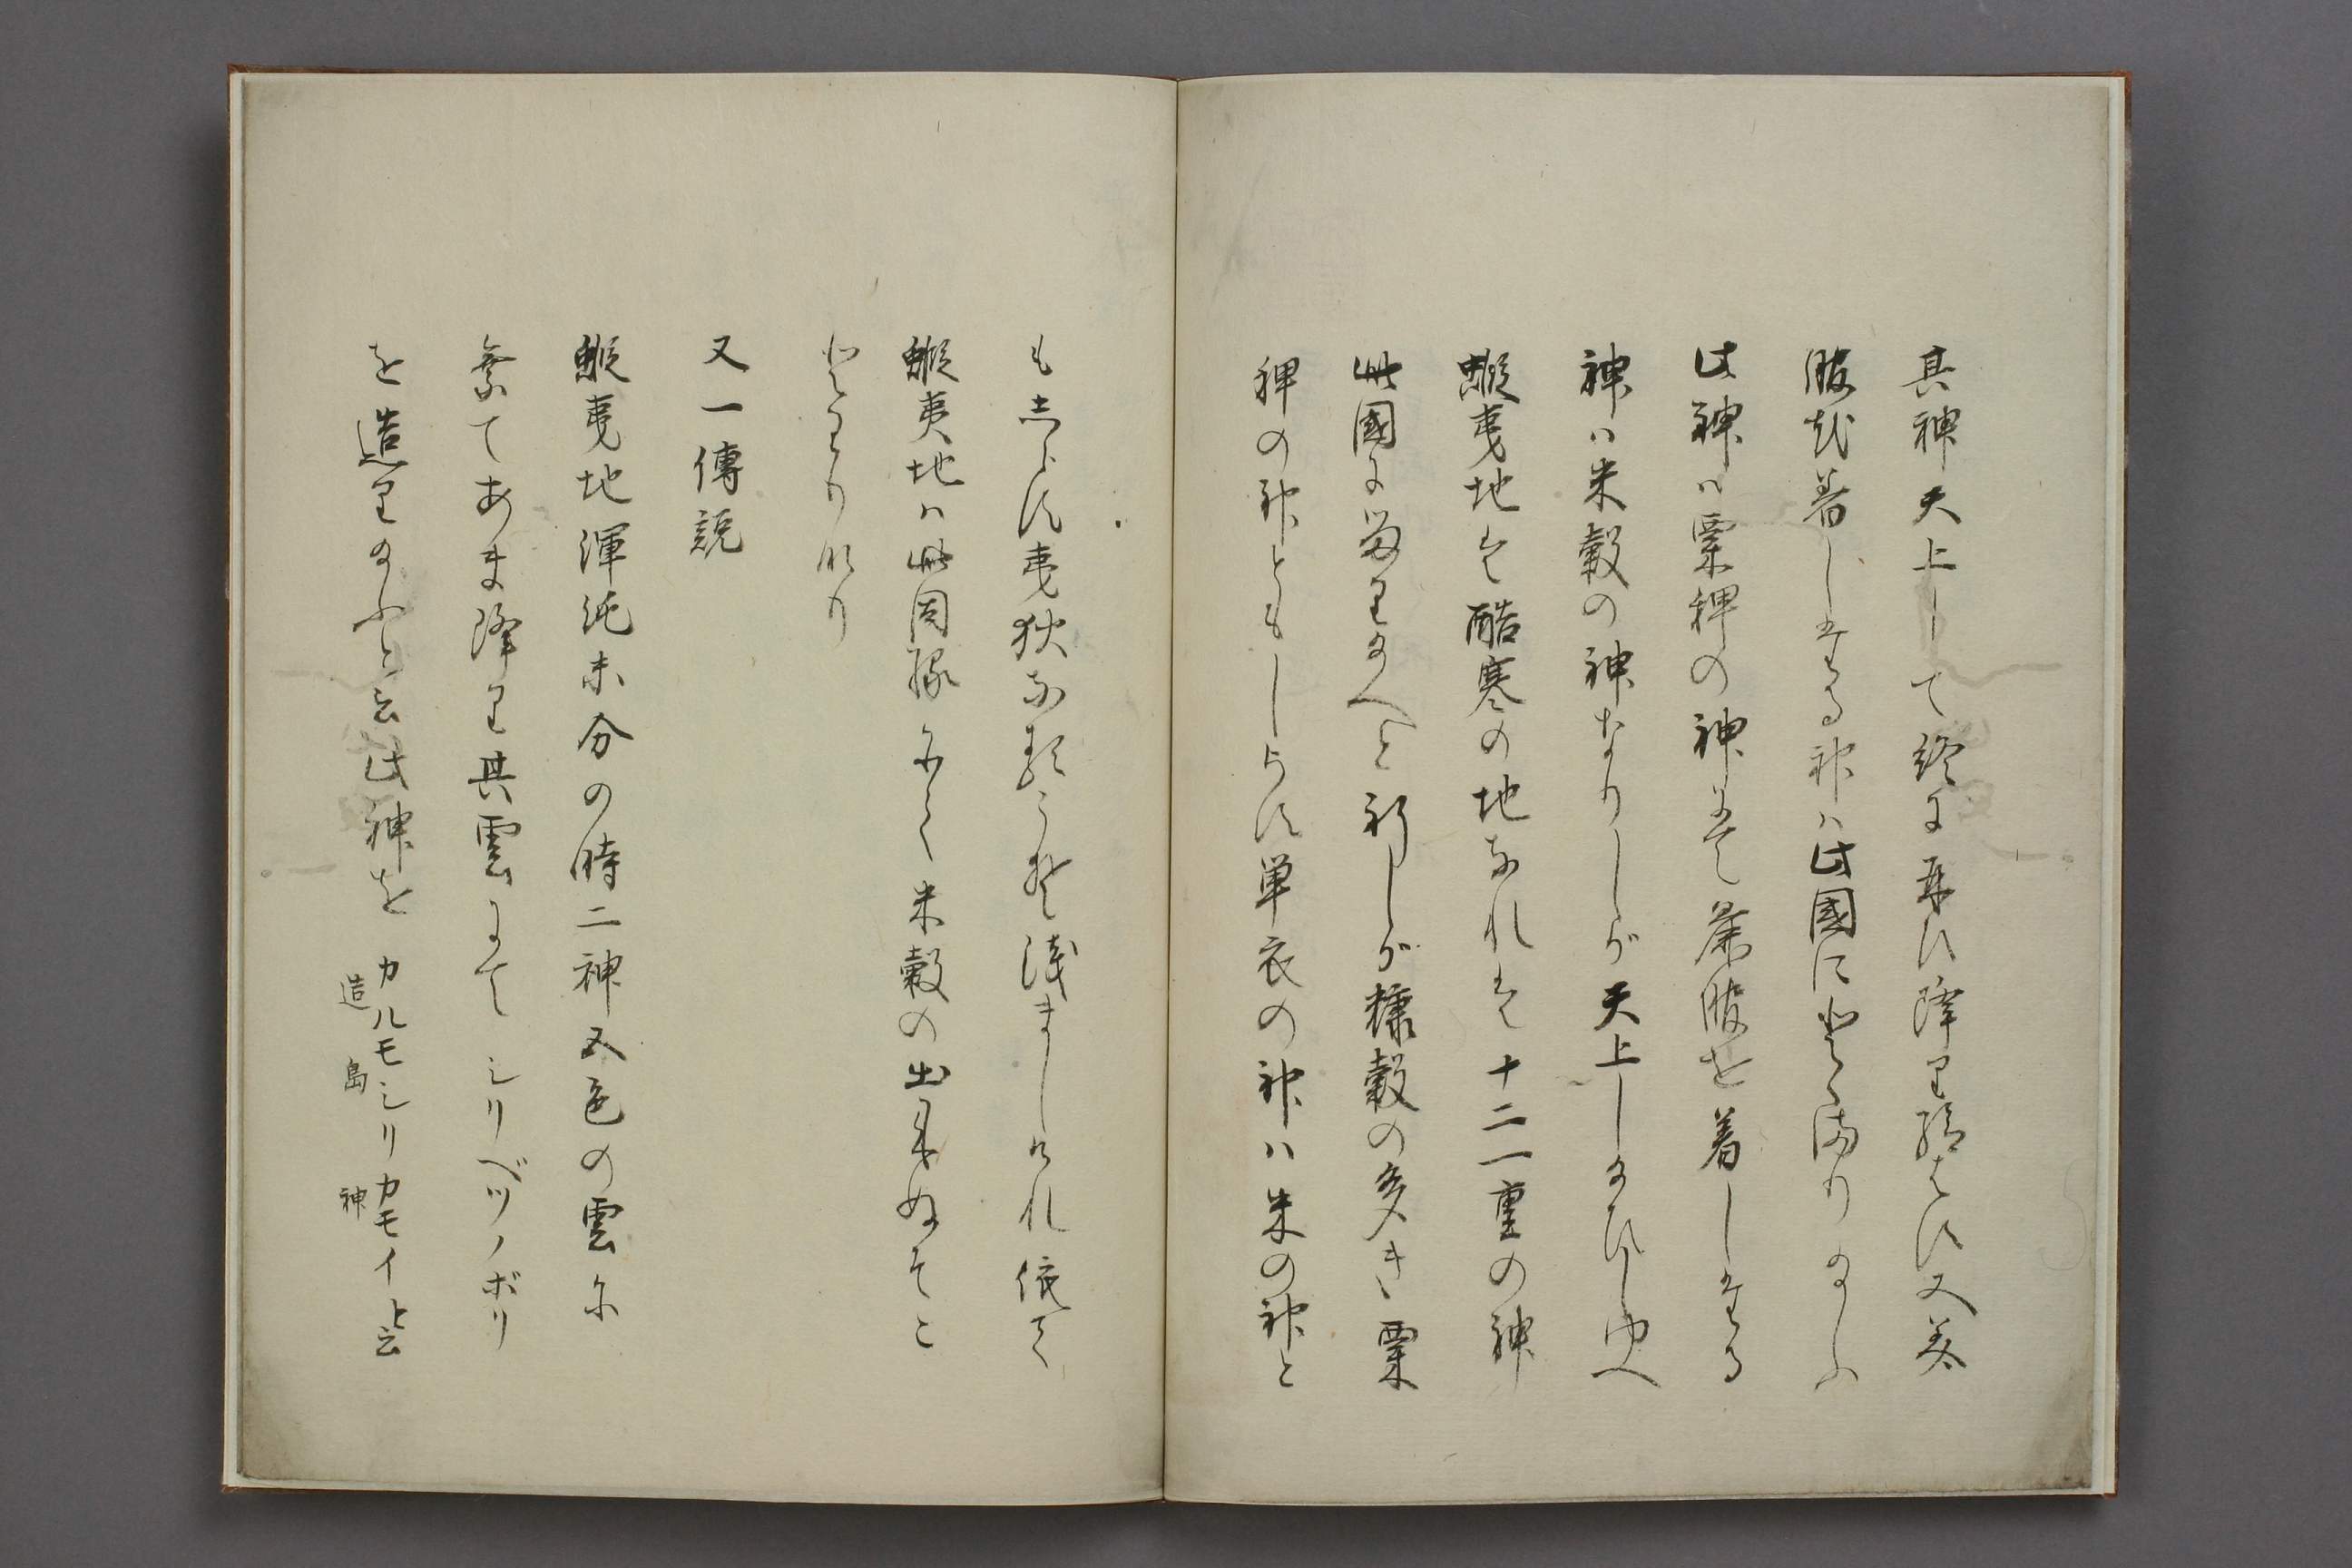 其神天上して終に再ひ降り給はす又美
服越着したる神ハ此國に出とゝ満り給ふ
此神ハ粟稗の神にて麁服を着したる
神ハ米穀の神なりしが天上し給ひしゆへ
蝦夷地は酷寒の地なれは十二一重の神
此國に留り給へと祈しが糠穀の多き粟
稗の神ともしらす単衣の神ハ米の神と
もしらす夷狄なるこそ浅ましけれ依て
蝦夷地ハ此因縁にて米穀の出来ぬそこ
となり
又一傳説
蝦夷地渾沌未分の時二神五色の雲に
乗てあま降り其雲にて シリベツノボリ
を造り給ふと云此神を カルモシリカモイト云
造 島 神